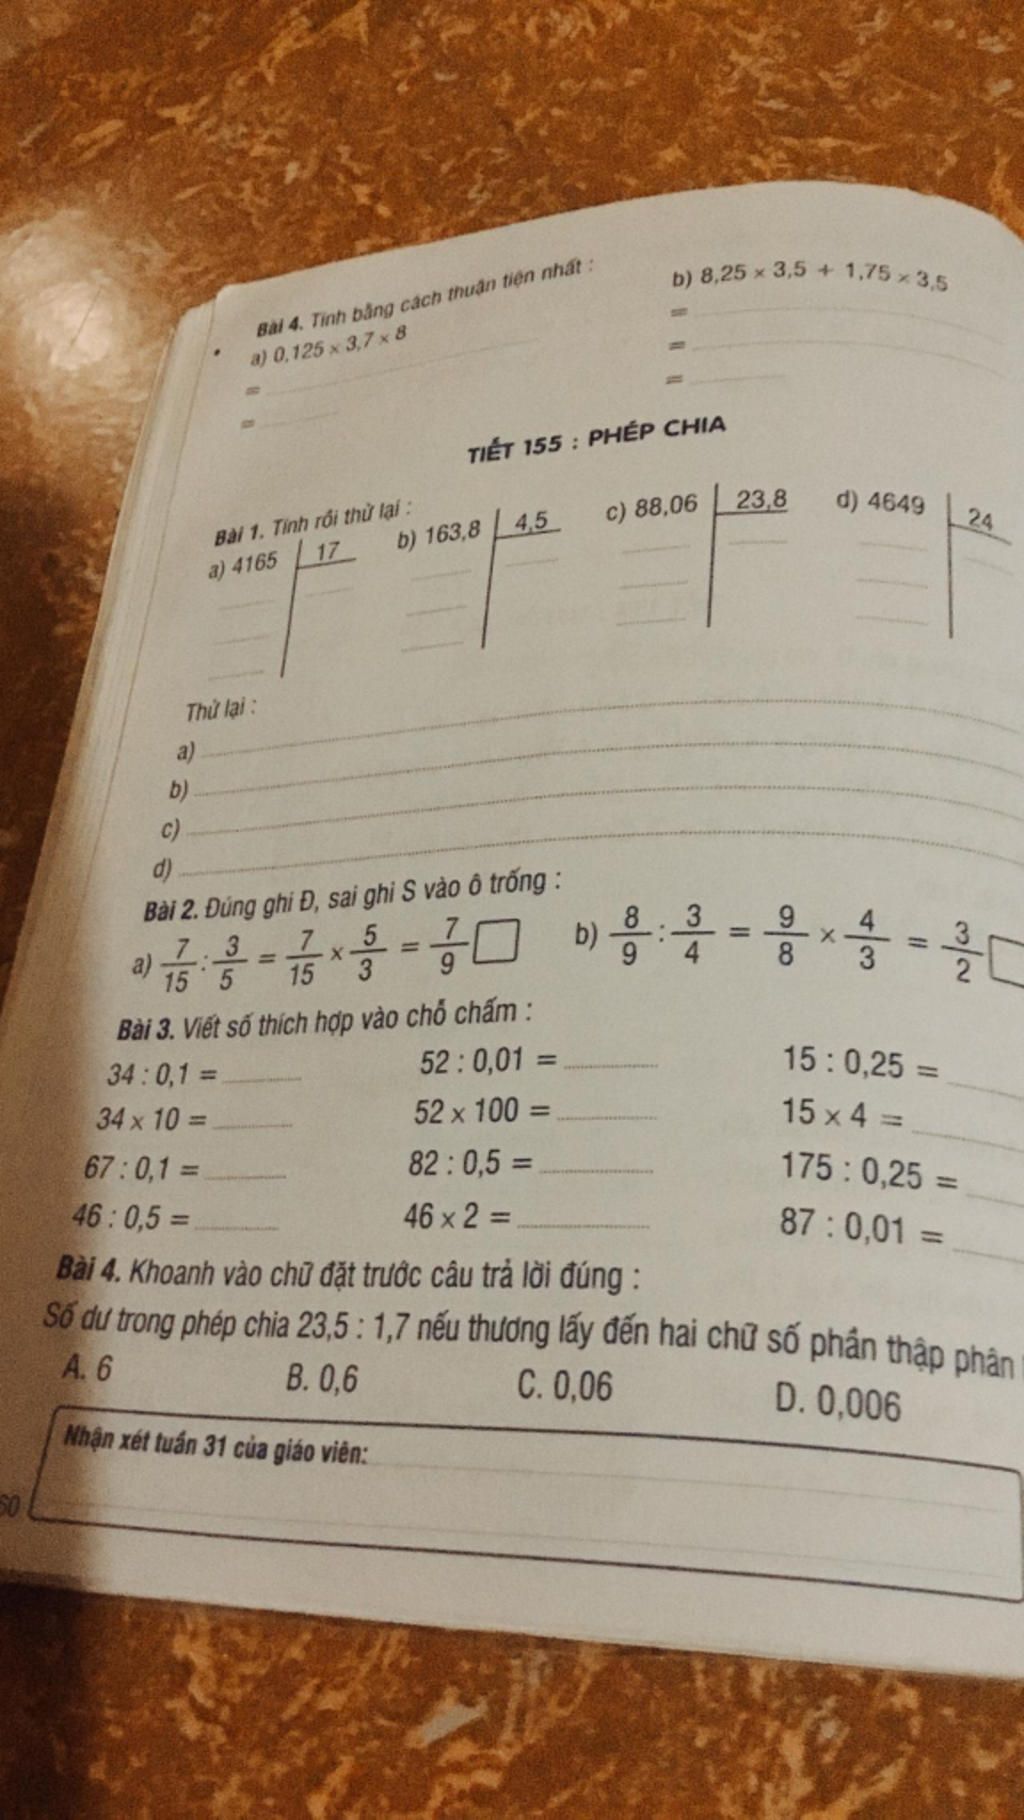 Bài 4. Tính bằng cách thuận tiện nhất :
a) 0,125 × 3,7 × 8 b) 8,25 × 3,5 + 1,75 × 3,5
= =
= =
=
TIẾT 155 : PHÉP CHIA
Bài 1. Tính rồi thử lại :
a) 4165 17 b) 163,8 4,5 c) 88,06 23,8 d) 4649 24
Thử lại :
a)
b)
c)
d)
Bài 2. Đúng ghi Đ, sai ghi S vào ô trống :
a) 7/15 : 3/5 = 7/15 × 5/3 = 7/9 b) 8/9 : 3/4 = 9/8 × 4/3 = 3/2
Bài 3. Viết số thích hợp vào chỗ chấm :
34 : 0,1 = 52 : 0,01 = 15 : 0,25 =
34 × 10 = 52 × 100 = 15 × 4 =
67 : 0,1 = 82 : 0,5 = 175 : 0,25 =
46 : 0,5 = 46 × 2 = 87 : 0,01 =
Bài 4. Khoanh vào chữ đặt trước câu trả lời đúng :
Số dư trong phép chia 23,5 : 1,7 nếu thương lấy đến hai chữ số phần thập phân
A. 6 B. 0,6 C. 0,06 D. 0,006
Nhận xét tuần 31 của giáo viên:
60